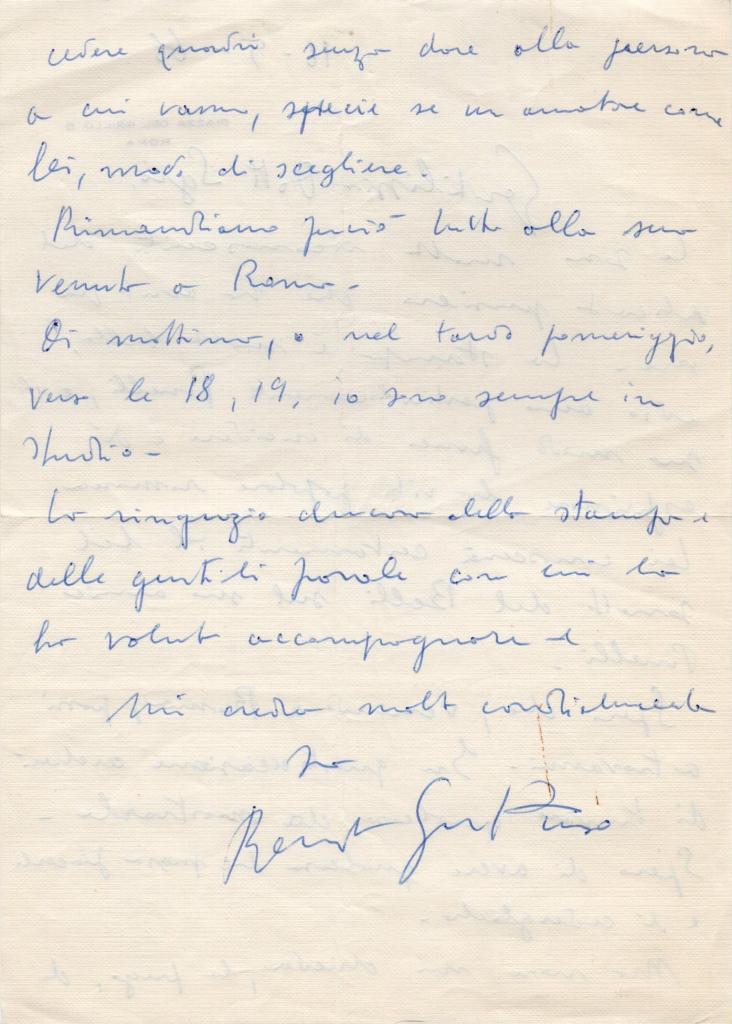 cedere quadri senza dare alla persona
a cui vanno, specie se un amatore come
lei, modo di scegliere.
Rimandiamo perciò tutto alla sua
venuta a Roma -
Di mattina, o nel tardo pomeriggio,
verso le 18, 19, io sono sempre in
studio -
La ringrazio ancora della stampa e
delle gentili parole con cui la
ha voluto accompagnare e
mi creda molto cordialmente
suo
Renato Guttuso